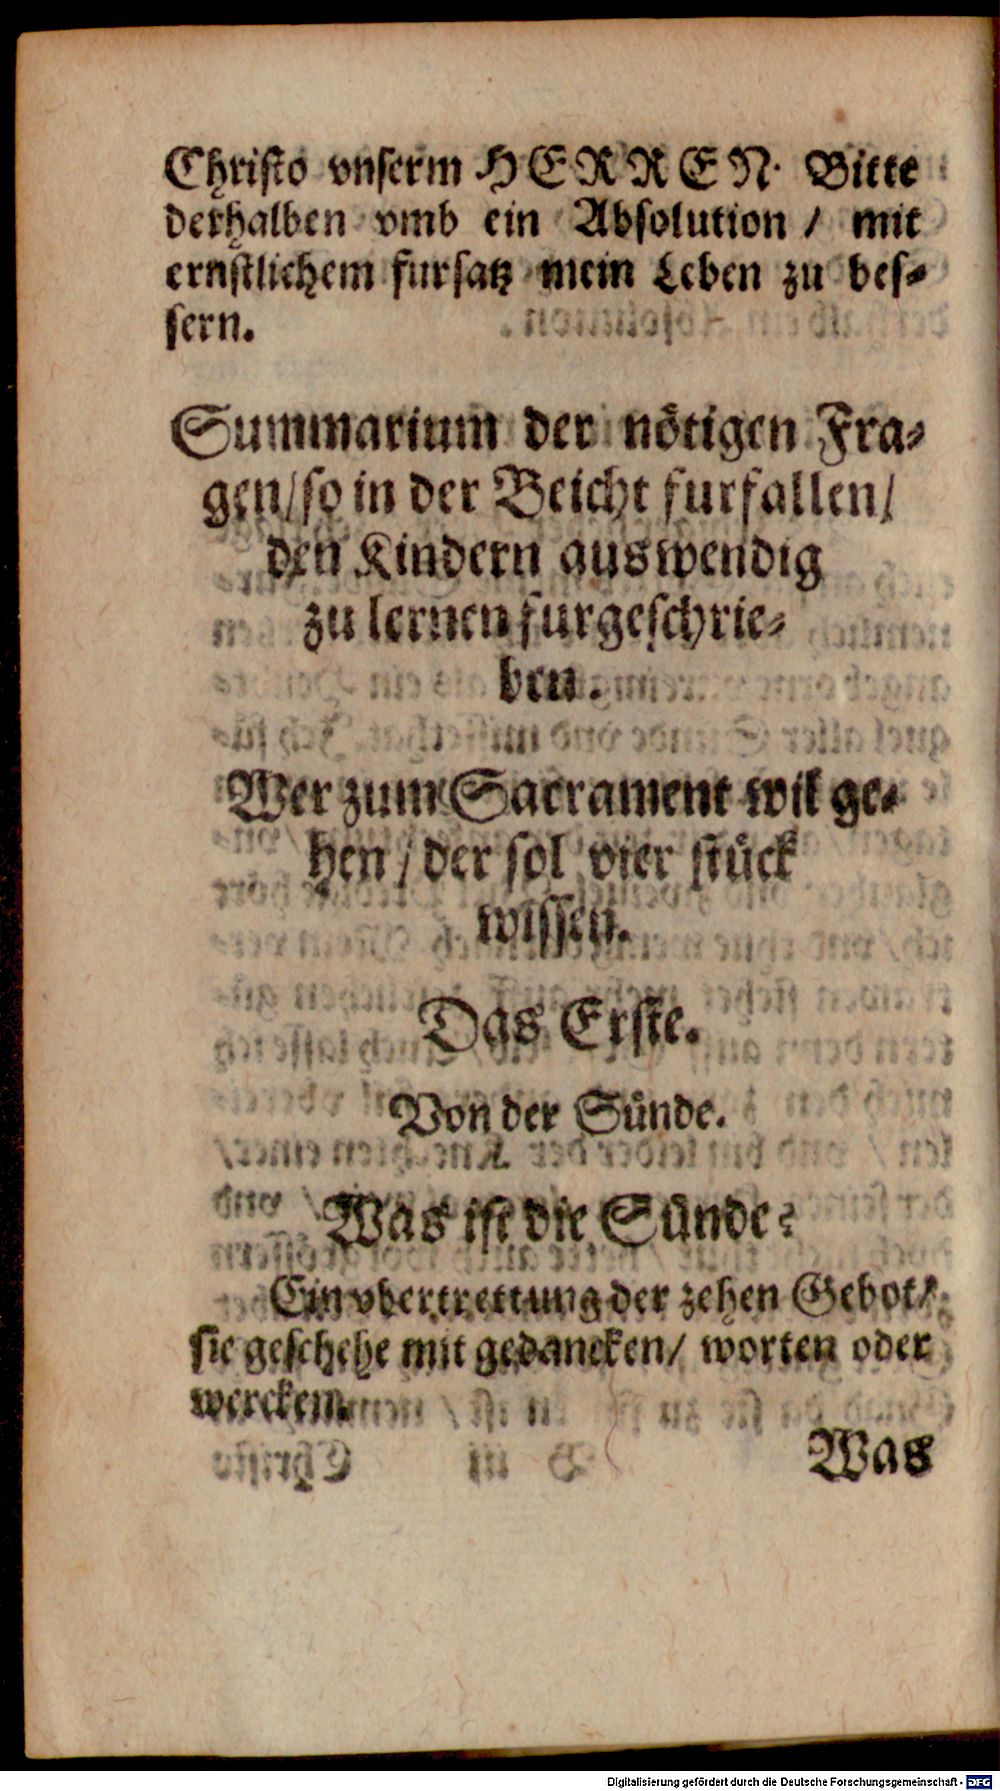 Christo vnserm HERREN. Bitte
derhalben vmb ein Absolution / mit
ernstlichem fursatz mein Leben zu bes⸗
sern.
Summarium der nötigen Fra⸗
gen/ so in der Beicht furfallen/
den Kindern auswendig
zu lernen furgeschrie⸗
ben.
Wer zum Sacrament wil ge⸗
hen / der sol vier stück
wissen.
Das Erste.
Von der Sünde.
Was ist die Sünde?
Ein vbertrettung der zehen Gebot/
sie geschehe mit gedancken/ worten oder
wercken.
Was
Digitalisierung gefördert durch die Deutsche Forschungsgemeinschaft - DFG